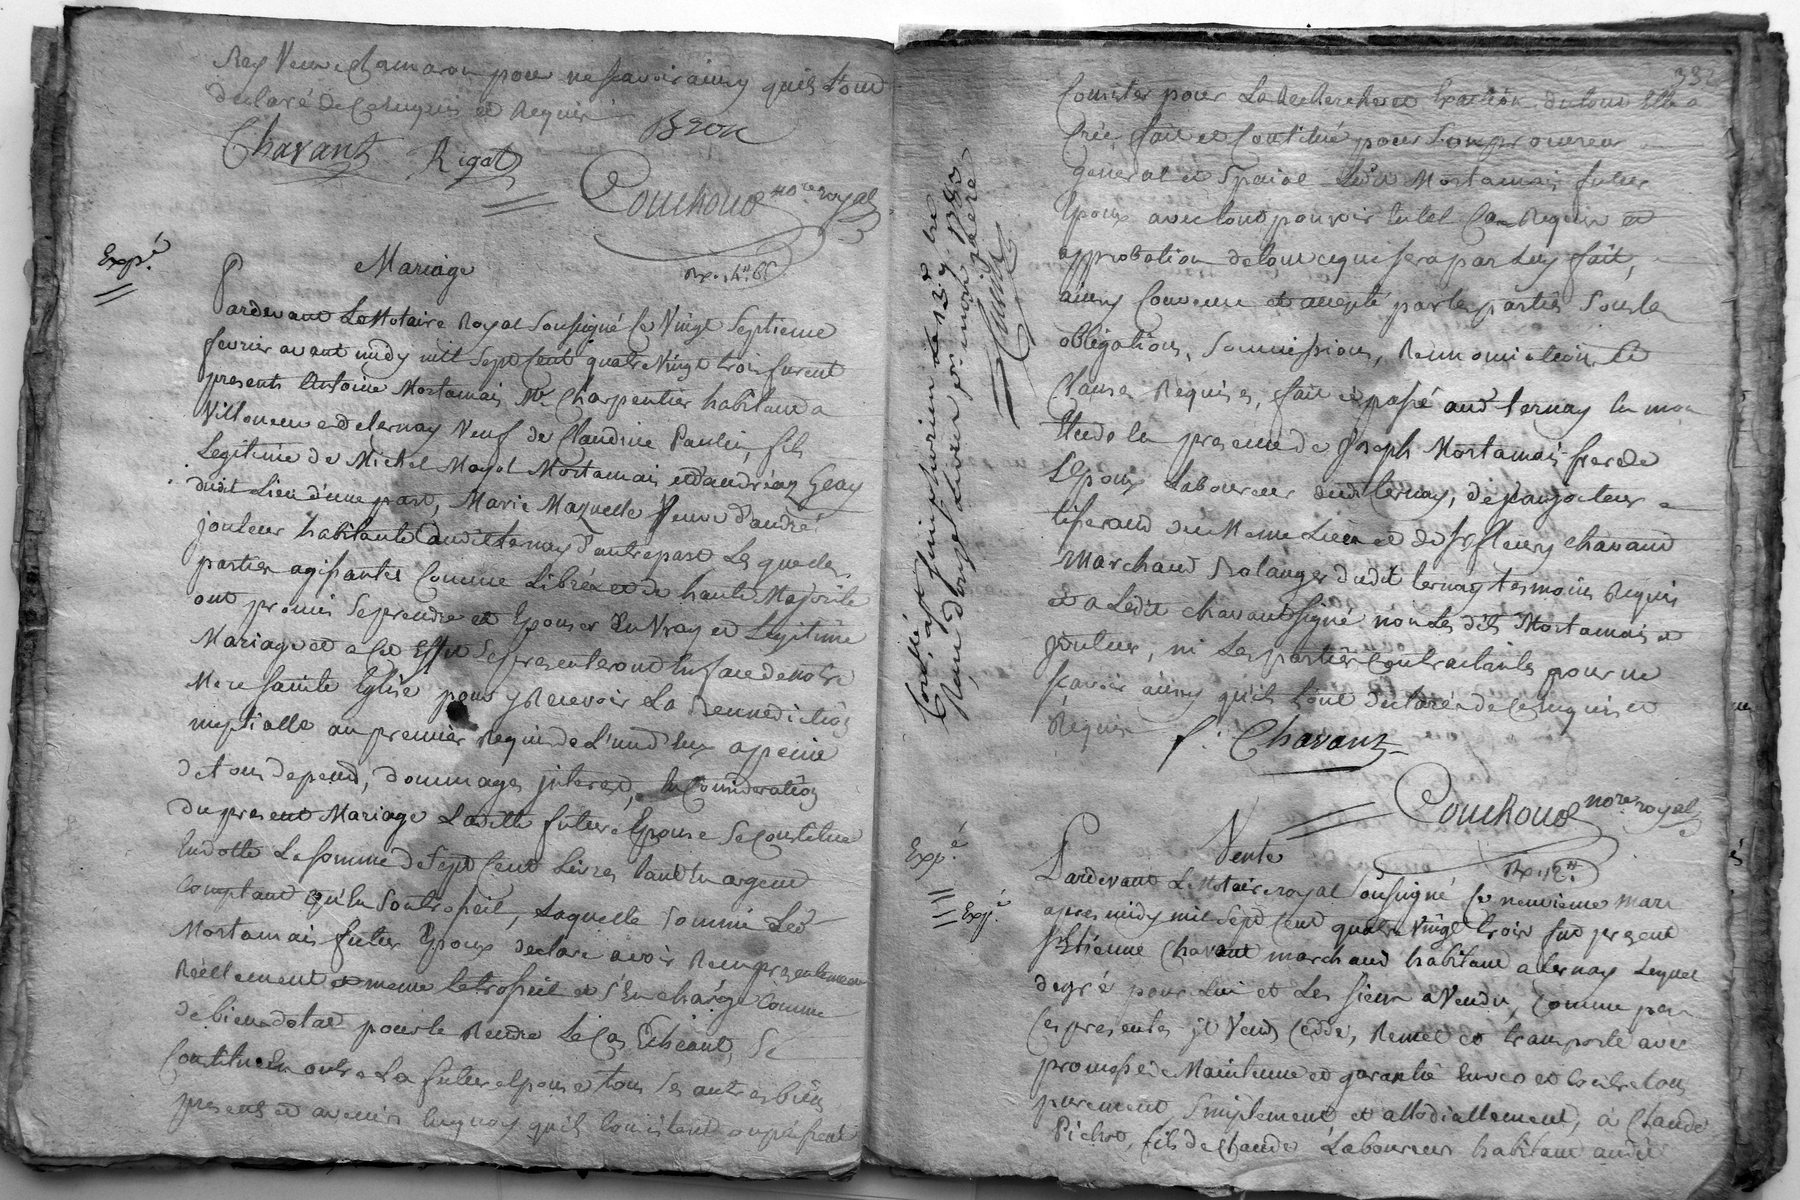 Rey Veuve Chamaron pour ne scavoir ainsy quils l'ont
declaré de ce Enquis et Requis
Bron
Chavant Rigat
Couchoud no.re royal
Exp.é
Mariage
Pardevant Le Notaire Royal Soussigné Ce Vingt Septieme
fevrier avant midy mill Sept Cent quatre Vingt trois furent
presents Antoine Mortamais M.e Charpentier habitant a
Villeneuve de ternay Veuf de Claudine Paulin, fils
Legitime de Michel Mortamais et d'andréaz Geay
dudit Lieu d'une part, Marie Mazuelle Veuve d'andré
jouteur habitante audit ternay d'autre part Lesquelles
parties agissantes Comme Libres et de haute Majorité
ont promis Se prendre et Epouser En Vray et Legitime
Mariage et a Cet Effet Se presenteront En face de notre
Mere sainte Eglise pour y Recevoir La Bennediction
nuptialle au premier Requis de L'un d'Eux a peine
de tous depend, dommages jnterest, En Consideration
du present Mariage Laditte future Epouse Se Constitue
En dotte La somme de Sept Cent Livres tant En argent
Comptant qu'En Son trosseil, Laquelle Somme Led.
Mortamais futur Epoux declare avoir Reçu presentement
Réellement et meme Le trosseil et S'En charge Comme
de bien dotal pour le Rendre Le Cas Echeant, Se
Constitue En outre La future Epouse tous Ses autres biens
presents et avenir Enquoy quils Consistent ou puissent
332
Consister pour La Recherche et Exaction du tout Elle a
Créé, fait et Constitué pour Son procureur
general et Special Led. Mortamais futur
Epoux avec tout pouvoir En tel Cas Requis et
approbation de tout ce qui sera par Luy fait,
ainsy Convenu et accepté par les parties Sous les
obligations, Soumissions, Renonciations, Et
Clauses Requises, fait et passé aud. ternay En mon
Etude En presence de Joseph Mortamais frere de
L'Epoux Laboureur dud. ternay, de jouteur
tisserand du Meme Lieu et de S.r fleury chavant
Marchand Bolanger dudit ternay temoins Requis
et a Ledit chavant Signé non Les dits Mortamais et
jouteur, ni Les parties Contractantes pour ne
scavoir ainsy qu'ils L'ont declaré de ce Enquis et
Requis
f. Chavant
Couchoud no.re royal
Exp.é
Vente
Exp.é
Pardevant Le Notaire royal Soussigné Ce neuvieme mars
apres midy mil Sept Cent quatre Vingt trois fut present
S.r Etienne Chavant marchand habitant a ternay Lequel
de gré pour Lui et Les siens a Vendu, Comme par
Ces presentes jl Vend Cedde, Remet et transporte avec
promesse de Maintenue et garantie Envers et Contre tous
purement, Simplement et allodiallement, à Claude
Pichot, fils de Claude Laboureur habitant audit